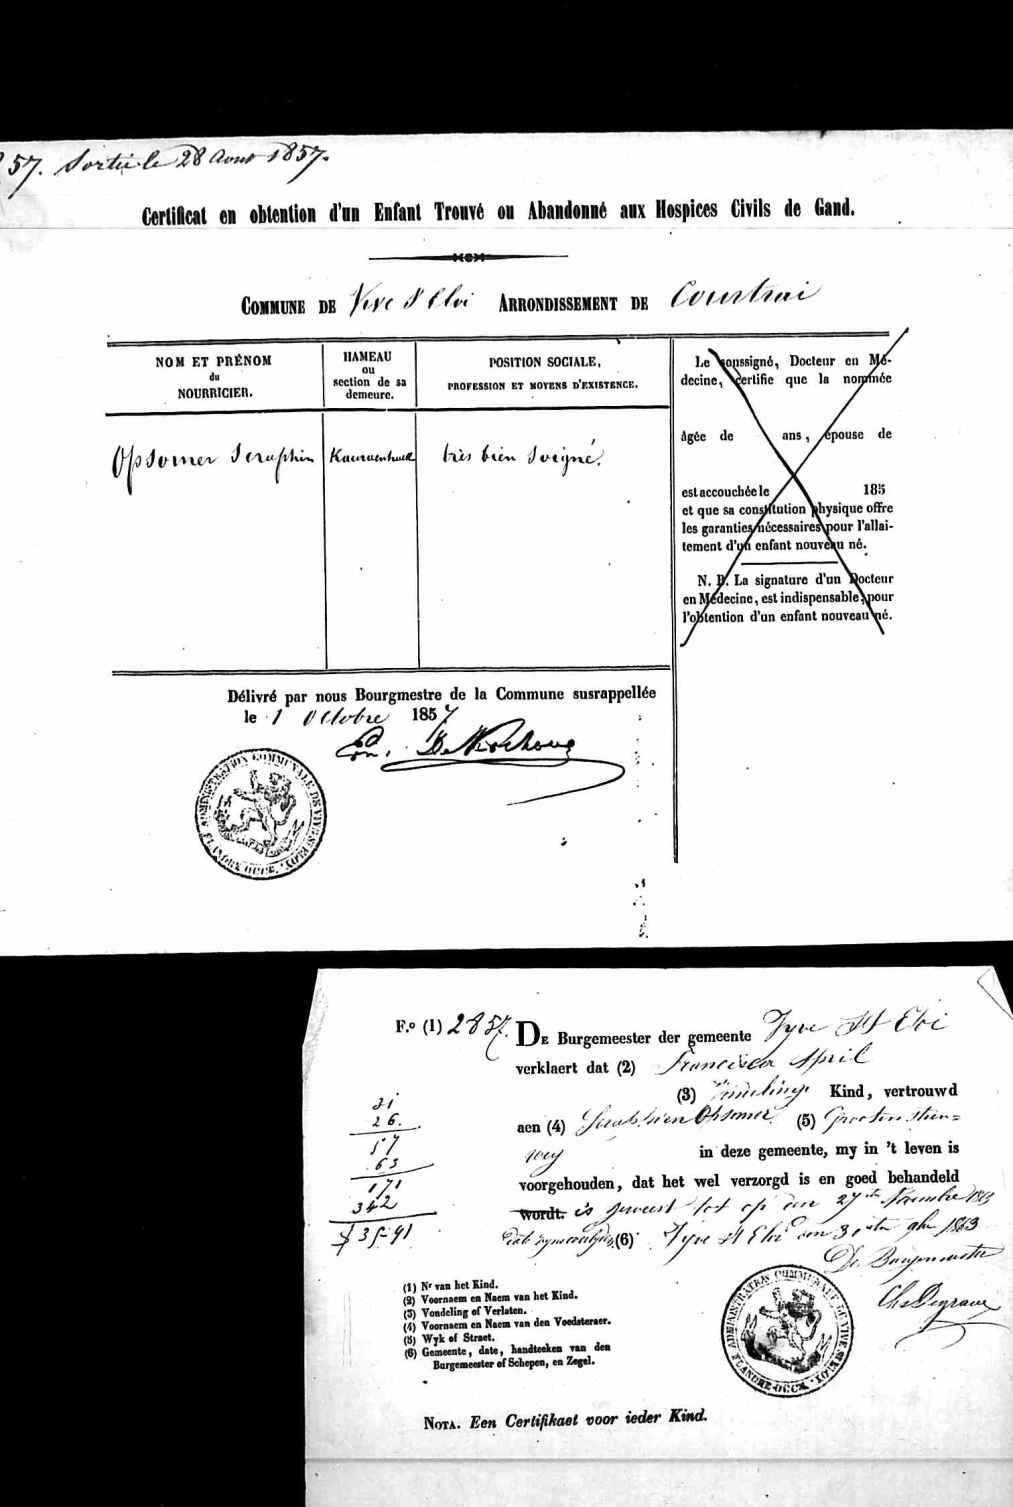 57. Sortie le 28 Aout 1857.
Certificat en obtention d'un Enfant Trouvé ou Abandonné aux Hospices Civils de Gand.
COMMUNE DE Vive St Eloi ARRONDISSEMENT DE Courtrai
NOM ET PRÉNOM
du
NOURRICIER.
HAMEAU
ou
section de sa
demeure.
POSITION SOCIALE,
PROFESSION ET MOYENS D'EXISTENCE.
Opsomer Seraphin
très bien soigné.
Le soussigné, Docteur en Mé-
decine, certifie que la nommée
âgée de ans, épouse de
est accouchée le 185
et que sa constitution physique offre
les garanties nécessaires pour l'allai-
tement d'un enfant nouveau né.
N. B. La signature d'un Docteur
en Médecine, est indispensable, pour
l'obtention d'un enfant nouveau né.
Délivré par nous Bourgmestre de la Commune susrappellée
le 1 Octobre 1857
ADMINISTRATION COMMUNALE DE VIVE-ST-ELOI.
FLANDRE OCCE.
F.º (1) 2857.
DE Burgemeester der gemeente Vyve St Eloi
verklaert dat (2) Francisca April
(3) Vindeling Kind, vertrouwd
aen (4) Seraphien Opsomer (5) Grooten Steen=
weg in deze gemeente, my in 't leven is
voorgehouden, dat het wel verzorgd is en goed behandeld
wordt. is geweest tot op den 27ste November 1863
(6) Vyve St Eloi den 30sten 9br 1863
De Burgemeester
Ch Degraeve
31
26.
57
63
171
342
35-91
(1) Nr van het Kind.
(2) Voornaem en Naem van het Kind.
(3) Vondeling of Verlaten.
(4) Voornaem en Naem van den Voedsteraer.
(5) Wyk of Straet.
(6) Gemeente, date, handteeken van den
Burgemeester of Schepen, en Zegel.
ADMINISTRATION COMMUNALE DE VIVE-ST-ELOI.
FLANDRE-OCCE.
NOTA. Een Certifikaet voor ieder Kind.